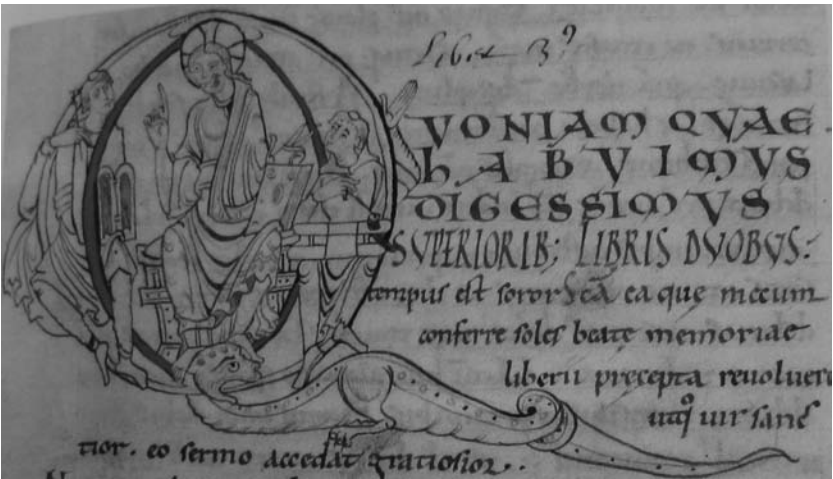 Liber 3⁹
QVONIAM QVAE
hABVIMVS
DIGESSIMVS
SVPERIORIB; LIBRIS DVOBVS:
tempus est soror scā ea que mecum
conferre soles beate memoriae
liberii precepta reuoluere
utq; uir sanc
tior. eo sermo accedat gratiosior..